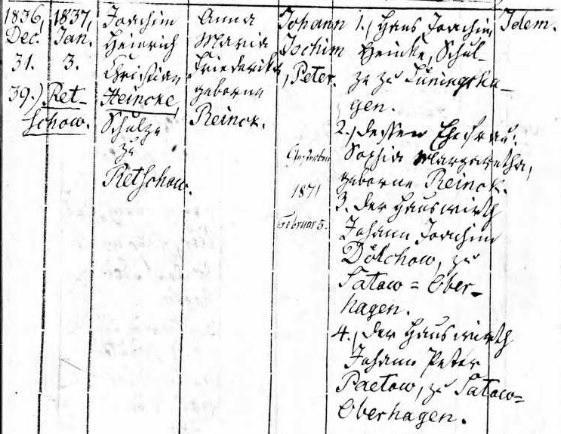 1836,
Dec.
31.
39.) Ret-
schow.
1837,
Jan.
3.
Joachim
Heinrich
Christian
Heincke,
Schulze
zu
Retschow.
Anna
Maria
Friederike
geborne
Reinck.
Johann
Jochim
Peter.
Gestorben
1871
Februar 5.
1., Hans Joachim
Heincke, Schul-
ze zu Püningsha-
gen.
2., dessen Ehefrau:
Sophia Margaretha,
geborne Reinck.
3. der Hauswirth
Johann Joachim
Dölchow, zu
Satow = Ober-
hagen.
4., der Hauswirth
Johann Peter
Paetow, zu Satow=
Oberhagen.
Idem.